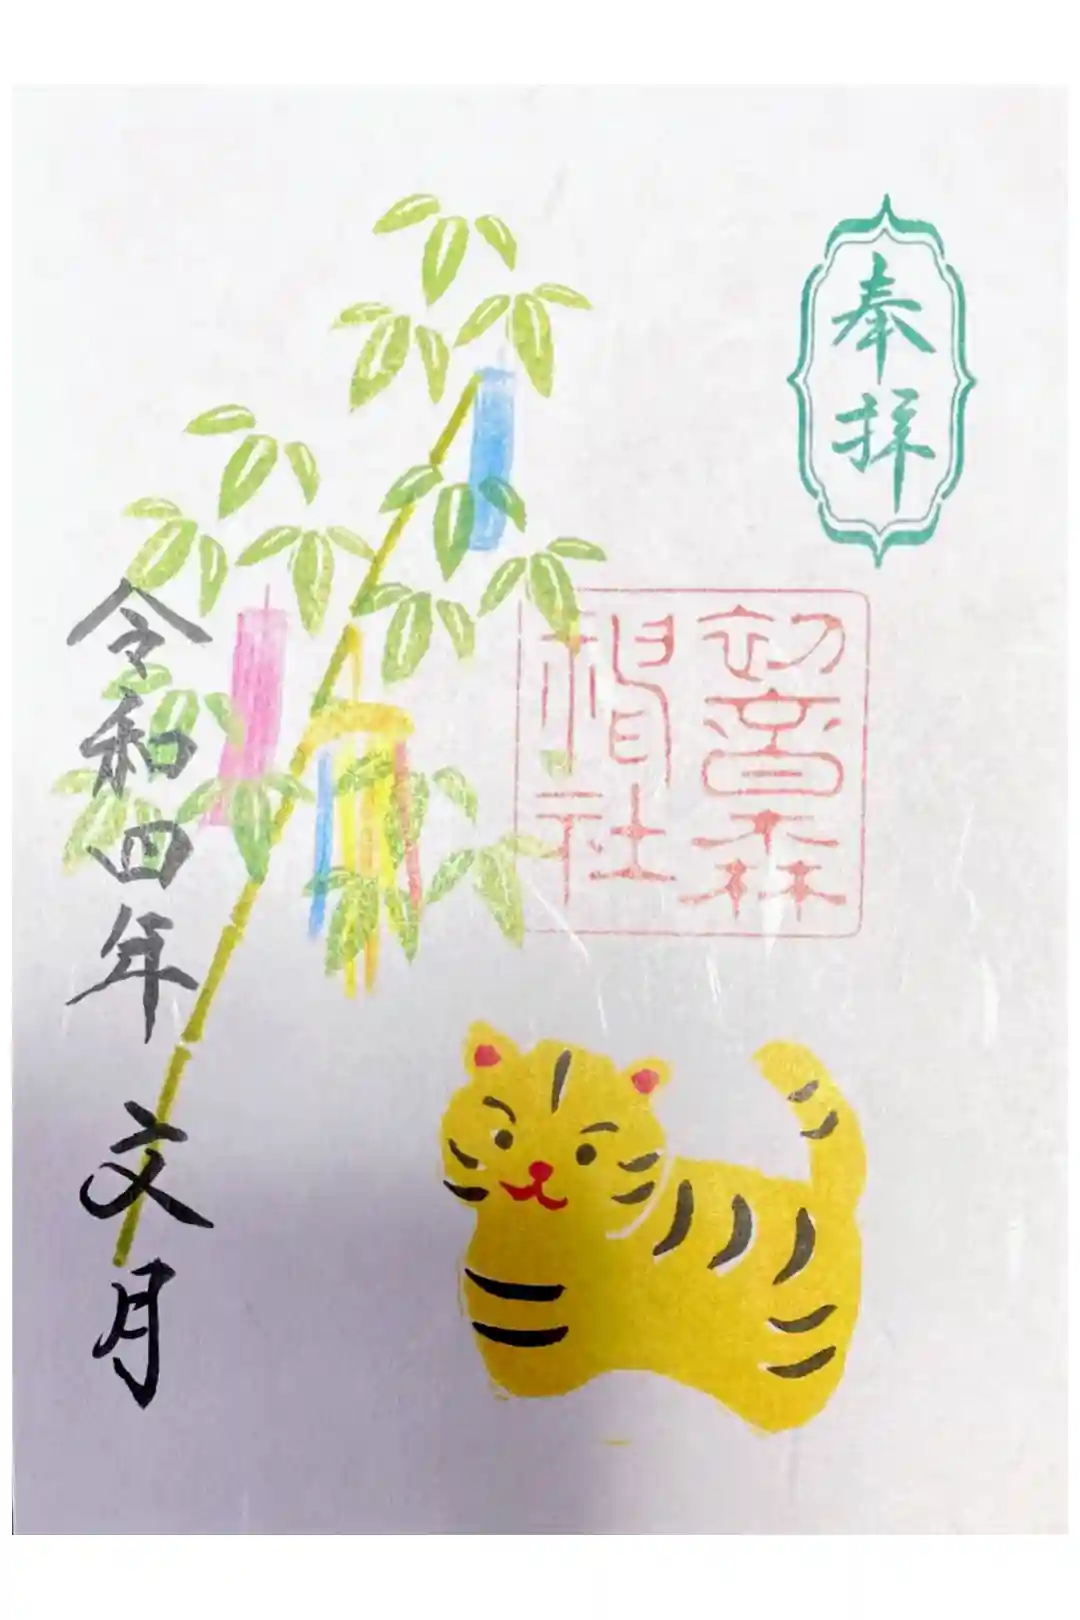 奉拝
初音森
神社
令和四年 文月